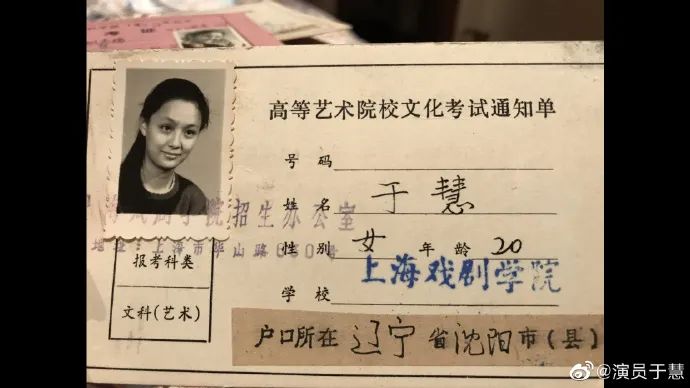 考 证
高等艺术院校文化考试通知单
号 码
姓 名 于 慧
戏剧学院招生办公室
地址:上海市华山路630号
性 别 女 年 龄 20
报考科类
学 校 上海戏剧学院
文科(艺术)
户口所在 辽宁 省 沈阳 市(县)
@演员于慧